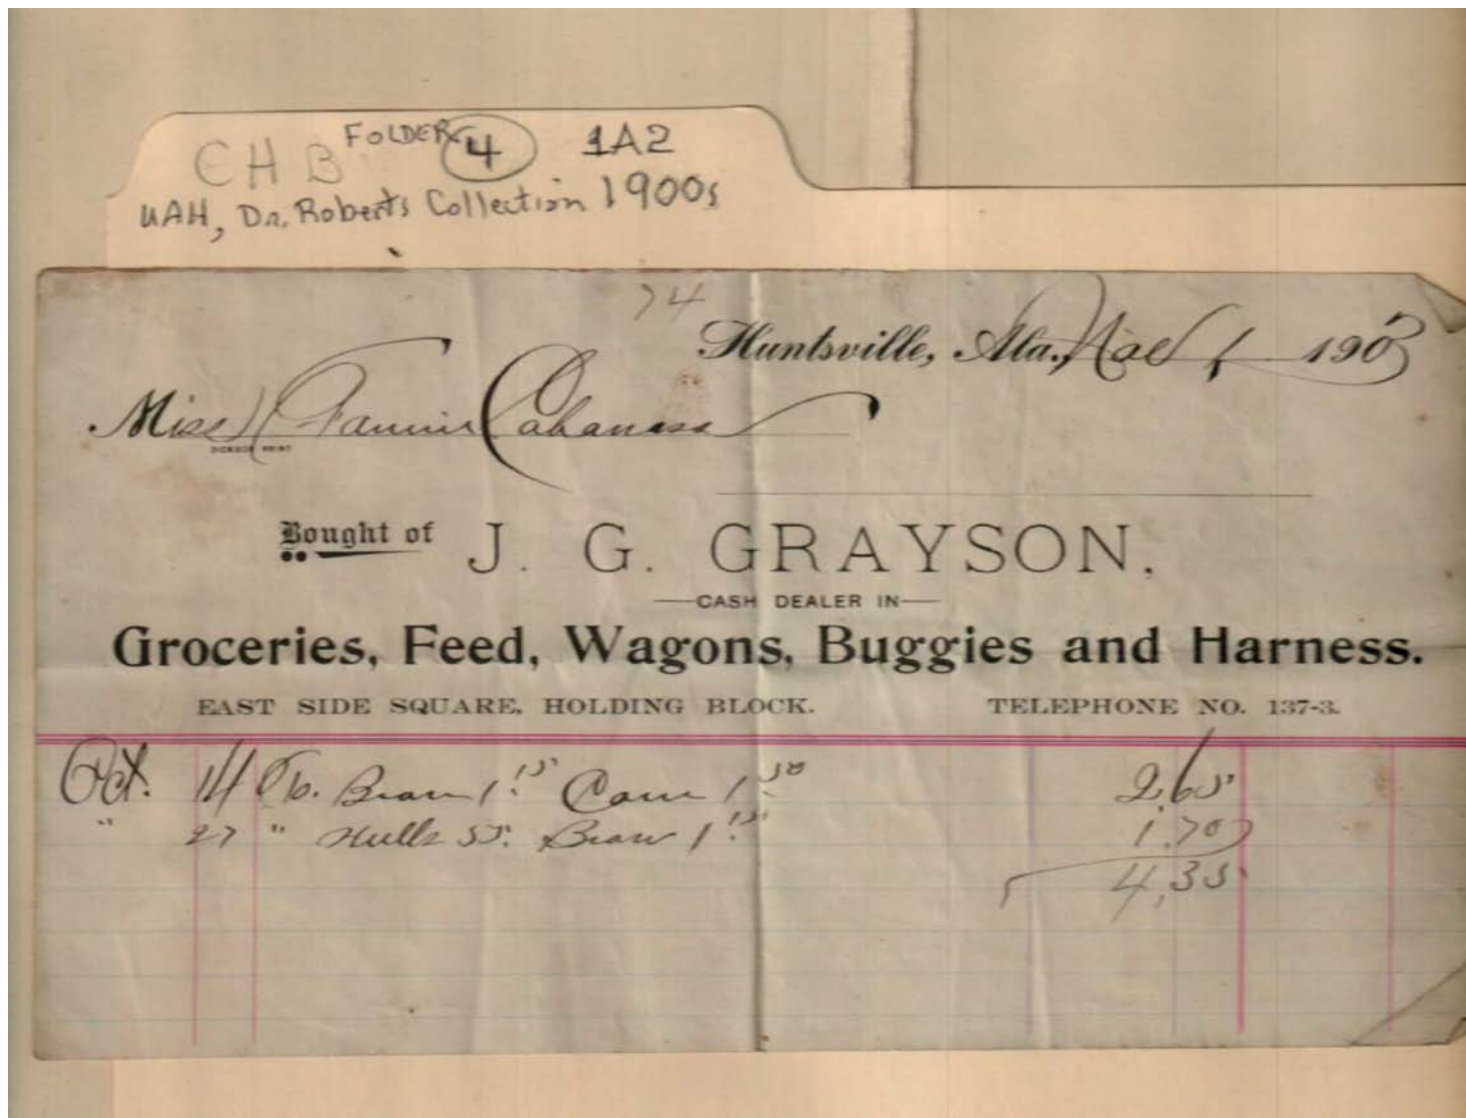 CHB FOLDER 4 1A2
UAH, Dr. Roberts Collection 1900s
74
Huntsville, Ala., Nov 1 1903
Miss Fannie Cabaness
DICKSON PRINT
Bought of J. G. GRAYSON,
CASH DEALER IN
Groceries, Feed, Wagons, Buggies and Harness.
EAST SIDE SQUARE. HOLDING BLOCK. TELEPHONE NO. 137-3.
Oct. 14 To. Bran 1.15 Corn 1.50 2.65
" 27 " Hulls 55. Bran 1.15 1.70
4.35